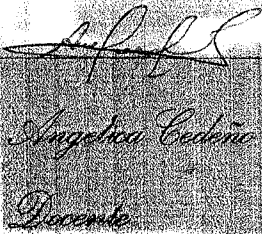 Angelica Cedeño
Docente